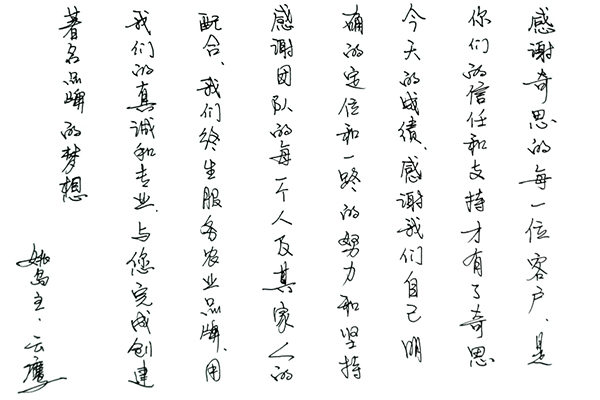 感谢奇思的每一位客户、是
你们的信任和支持才有了奇思
今天的成绩、感谢我们自己明
确的定位和一路的努力和坚持
感谢团队的每一个人及其家人的
配合、我们终生服务农业品牌、用
我们的真诚和专业、与您完成创建
著名品牌的梦想
岛主·云鹰